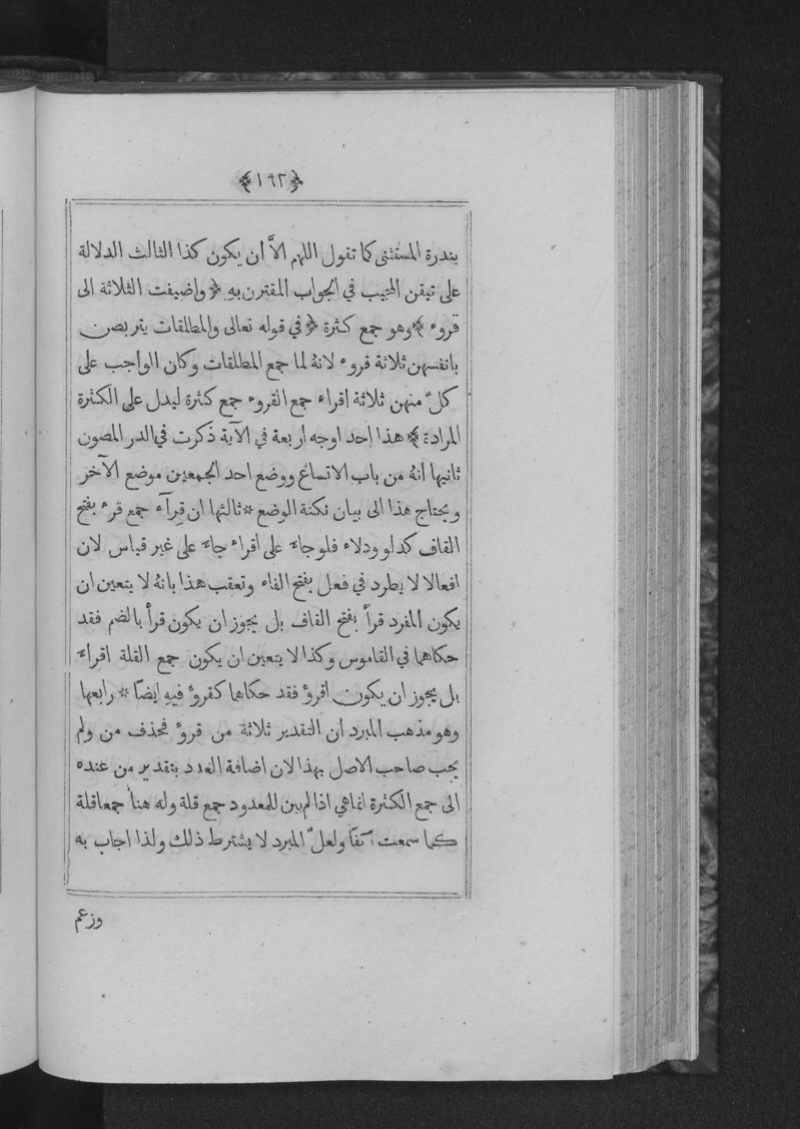 ﴿١٦٢﴾
بندرة المستثنى كما تقول اللهم الاَّ أن يكون كذا الثالث الدلالة
على تيقن المجيب في الجواب المقترن بهِ ﴿ واضيفت الثلاثة الى
قروء ﴾ وهو جمع كثرة ﴿ في قوله تعالى والمطلقات يتربصن
بانفسهن ثلاثة قروء لانهُ لما جمع المطلقات وكان الواجب على
كلٍّ منهن ثلاثة اقراء جمع القروء جمع كثرة ليدل على الكثرة
المرادة ﴾ هذا احد اوجه اربعة في الآية ذكرت في الدر المصون
ثانيها انهُ من باب الاتساع ووضع احد الجمعين موضع الآخر
ويحتاج هذا الى بيان نكتة الوضع * ثالثها ان قِرآء جمع قرء بفتح
القاف كدلو ودلاء فلو جاء على اقراء جاء على غير قياس لان
افعالا لا يطرد في فعل بفتح الفاء وتعقب هذا بانهُ لا يتعين ان
يكون المفرد قرأ بفتح القاف بل يجوز ان يكون قرأ بالضم فقد
حكاهما في القاموس وكذا لا يتعين ان يكون جمع القلة اقراء
بل يجوز ان يكون اقرؤ فقد حكاهما كقروؤ فيهِ ايضًا * رابعها
وهو مذهب المبرد ان التقدير ثلاثة من قروؤ فحذف من ولم
يجب صاحب الاصل بهذا لان اضافة العدد بتقدير من عنده
الى جمع الكثرة انما هي اذا لم يبن للمعدود جمع قلة وله هنا جمعا قلة
كما سمعت آنفًا ولعلَّ المبرد لا يشترط ذلك ولذا اجاب به
وزعم